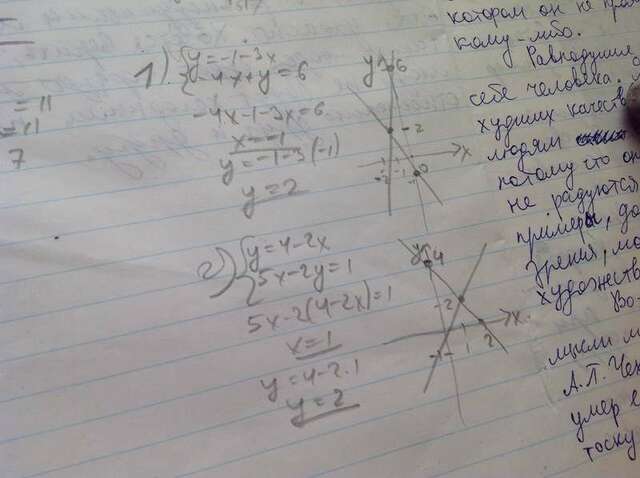 = 11
= 11
7
1) { y = -1 - 3x
-4x + y = 6
-4x - 1 - 3x = 6
x = -1
y = -1 - 3 (-1)
y = 2
y
6
2
x
-2
-1
0
2) { y = 4 - 2x
5x - 2y = 1
5x - 2(4 - 2x) = 1
x = 1
y = 4 - 2 · 1
y = 2
y
4
2
x
-1
1
2
котором он не
кому-либо.
Равнодушие
себе человека.
худших качеств
людям
потому что он
не радуются
примеры, до
зрения, мо
художеств
Во
мысли м
А. П. Чех
умер
тоску